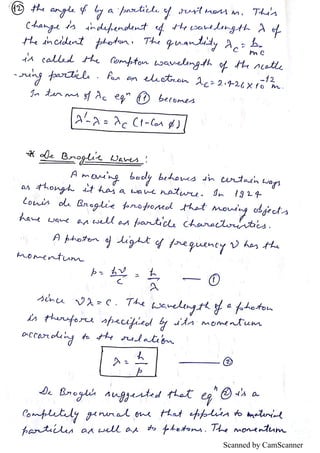 (12) the angle φ by a particle of rest mass m. This
change is independent of the wavelength λ of
the incident photon. The quantity λc = h/mc
is called the Compton wavelength of the scatte
-ring particle. For an electron λc = 2.426 × 10⁻¹² m.
In terms of λc eqⁿ (11) becomes
λ' - λ = λc (1 - Cos φ)
* De Broglie Waves:
A moving body behaves in certain ways
as though it has a wave nature. In 1924
Louis de Broglie proposed that moving objects
have wave as well as particle characteristics.
A photon of light of frequency ν has the
momentum
p = hν/c = h/λ — (1)
since νλ = c. The wavelength of a photon
is therefore specified by its momentum
according to the relation
λ = h/p — (2)
De Broglie suggested that eqⁿ (2) is a
completely general one that applies to material
particles as well as to photons. The momentum
Scanned by CamScanner